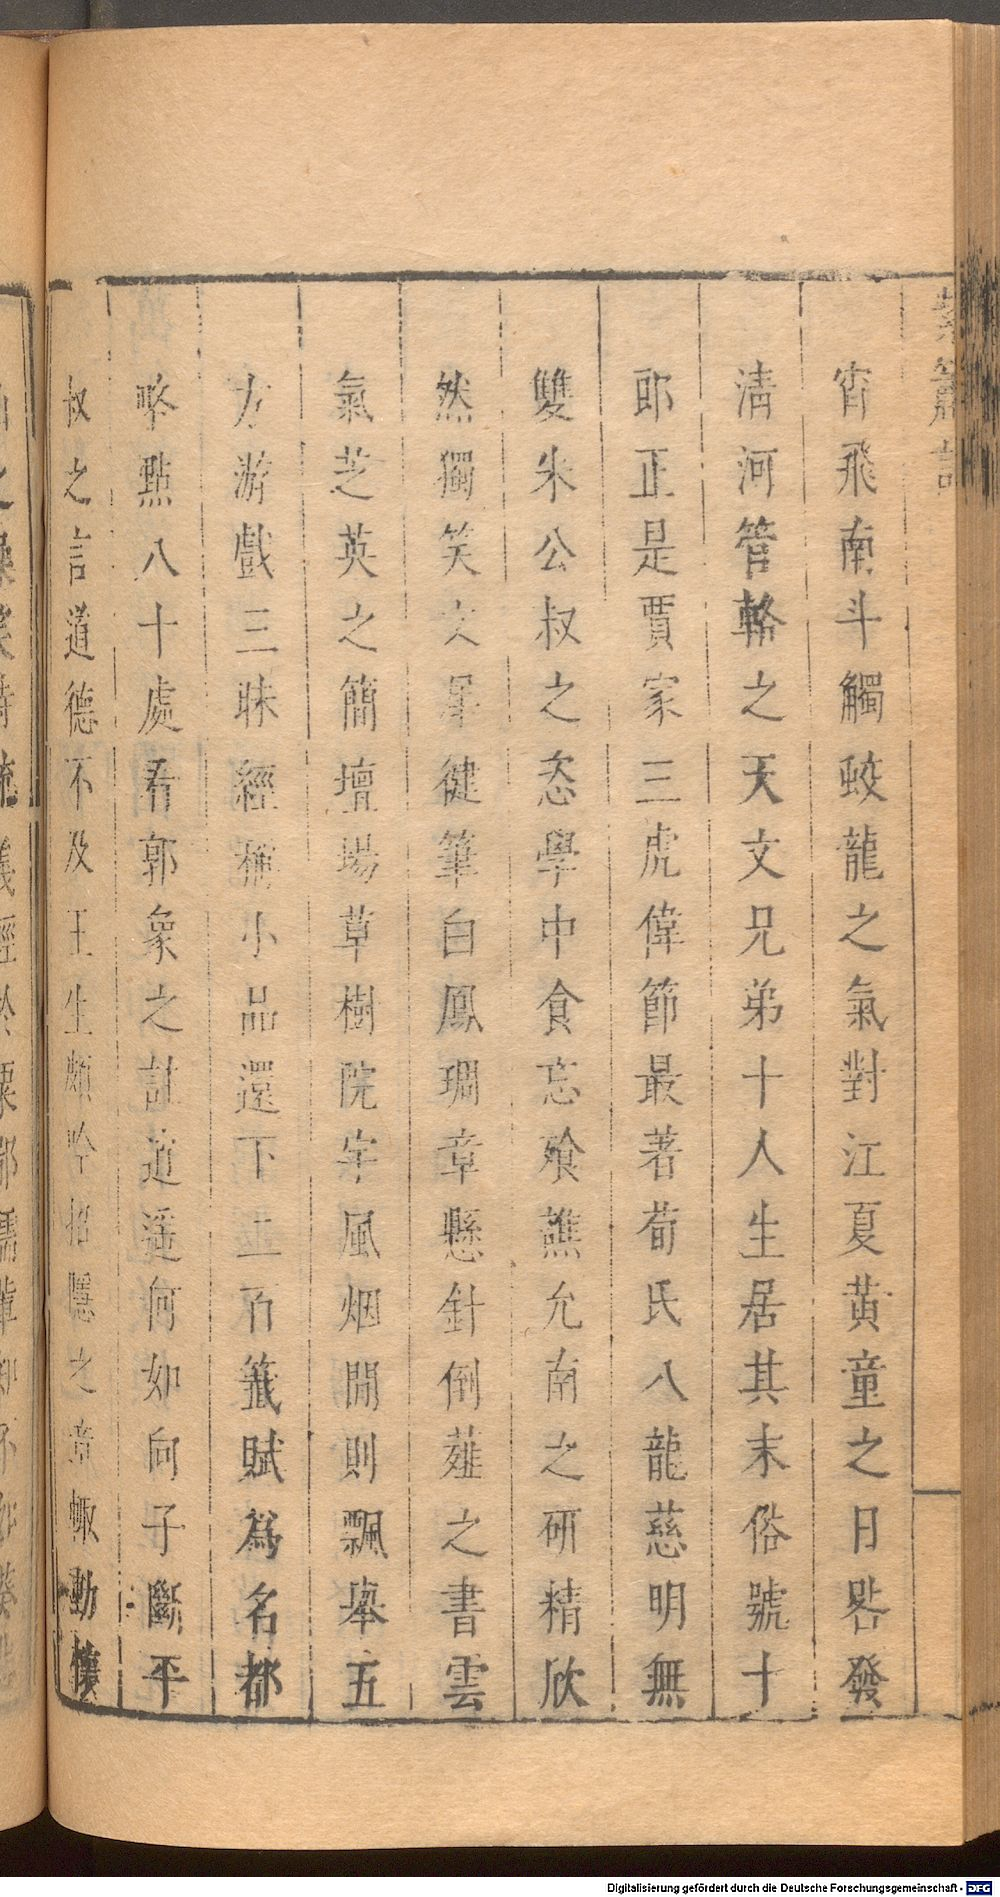 宵飛南斗觸蛟龍之氣對江夏黃童之日晷發
清河管輅之天文兄弟十人生居其末俗號十
郎正是賈家三虎偉節最著荀氏八龍慈明無
雙朱公叔之恣學中食忘飱譙允南之研精欣
然獨笑文犀健筆白鳳琱章懸針倒薤之書雲
氣芝英之簡壇場草樹院宇風烟閒則飄舉五
方游戲三昧經稱小品還下二百籤賦為名都
略點八十處看郭象之註逍遥何如向子斷平
叔之言道德不及王生頗吟招隱之章輙動懷
Digitalisierung gefördert durch die Deutsche Forschungsgemeinschaft - DFG